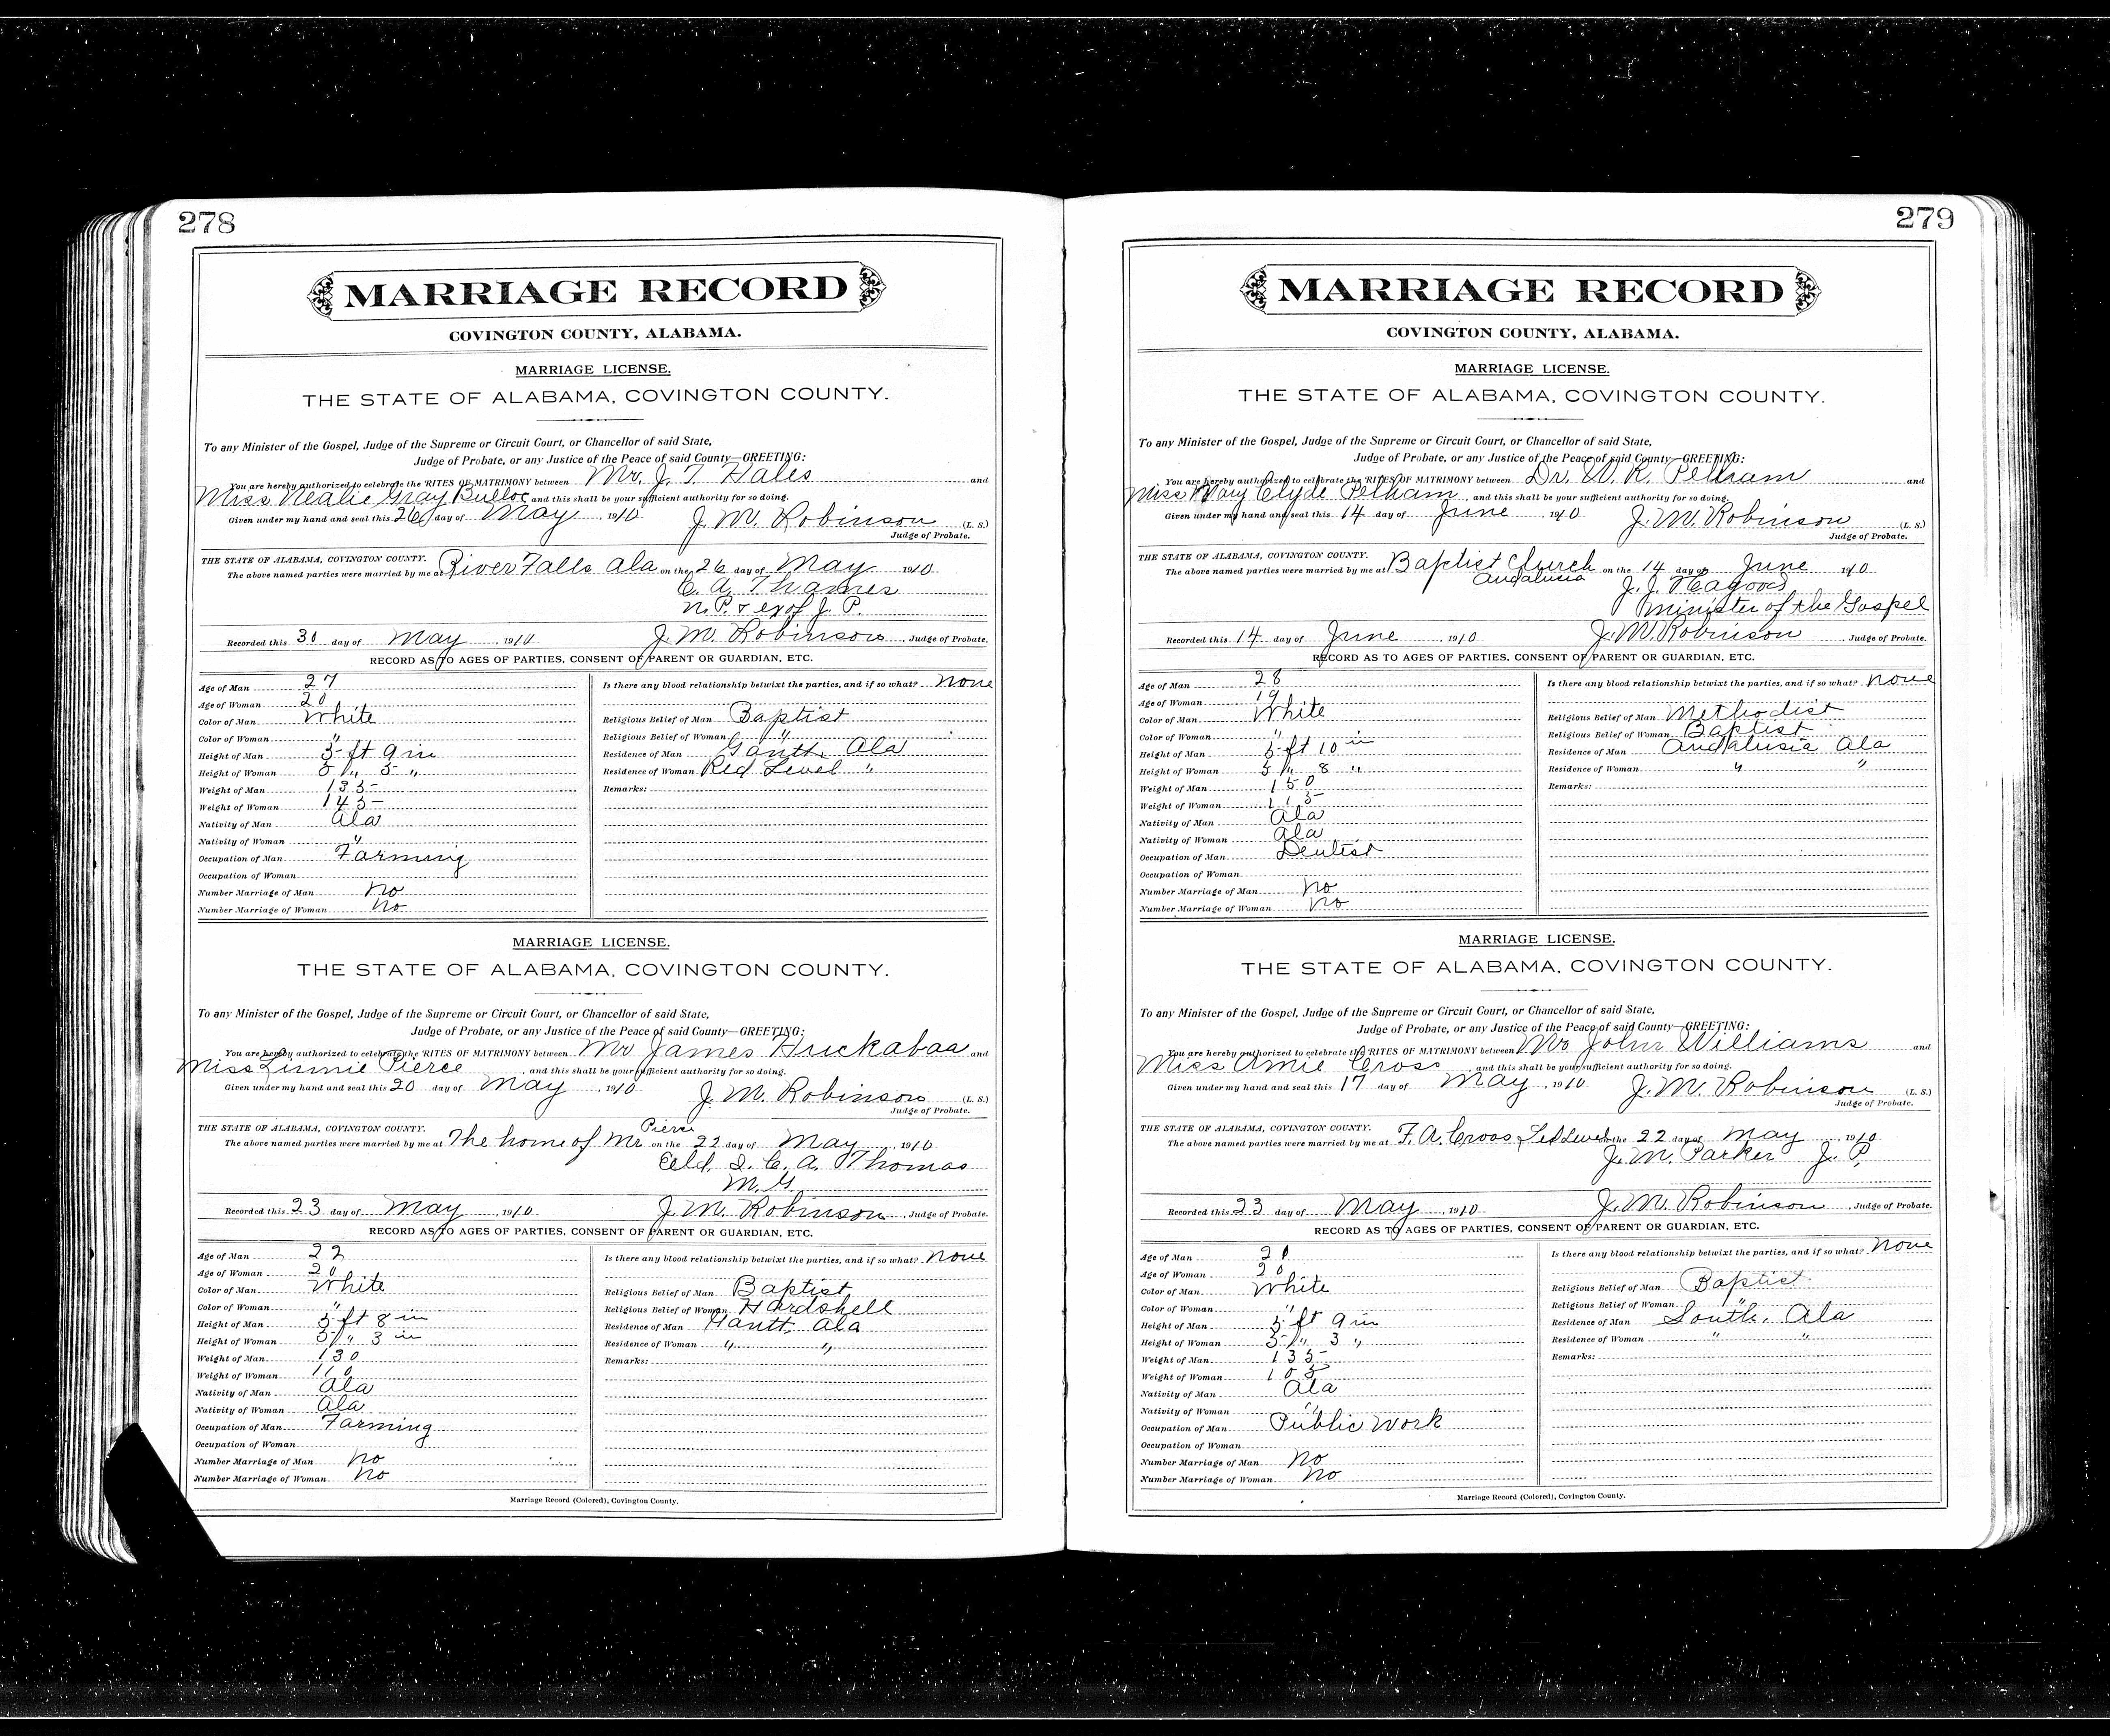 278
MARRIAGE RECORD
COVINGTON COUNTY, ALABAMA.
MARRIAGE LICENSE.
THE STATE OF ALABAMA, COVINGTON COUNTY.
To any Minister of the Gospel, Judge of the Supreme or Circuit Court, or Chancellor of said State,
Judge of Probate, or any Justice of the Peace of said County—GREETING:
You are hereby authorized to celebrate the RITES OF MATRIMONY between Mr. J. T. Hales and
Miss Nealie Gray Bulloc and this shall be your sufficient authority for so doing.
Given under my hand and seal this 26 day of May 1910 J. M. Robinson (L. S.)
Judge of Probate.
THE STATE OF ALABAMA, COVINGTON COUNTY.
The above named parties were married by me at River Falls Ala on the 26 day of May 1910
C. A. Thames
N. P. & exof J. P.
Recorded this 30 day of May 1910 J. M. Robinson, Judge of Probate.
RECORD AS TO AGES OF PARTIES, CONSENT OF PARENT OR GUARDIAN, ETC.
Age of Man 27
Age of Woman 20
Color of Man White
Color of Woman "
Height of Man 5 ft 9 in
Height of Woman 5 " 5 "
Weight of Man 135
Weight of Woman 145
Nativity of Man Ala
Nativity of Woman "
Occupation of Man Farming
Occupation of Woman
Number Marriage of Man no
Number Marriage of Woman no
Is there any blood relationship betwixt the parties, and if so what? none
Religious Belief of Man Baptist
Religious Belief of Woman "
Residence of Man Gantt, Ala
Residence of Woman Red Level "
Remarks:
MARRIAGE LICENSE.
THE STATE OF ALABAMA, COVINGTON COUNTY.
To any Minister of the Gospel, Judge of the Supreme or Circuit Court, or Chancellor of said State,
Judge of Probate, or any Justice of the Peace of said County—GREETING:
You are hereby authorized to celebrate the RITES OF MATRIMONY between Mr James Huckabaa and
Miss Linnie Pierce, and this shall be your sufficient authority for so doing.
Given under my hand and seal this 20 day of May, 1910 J. M. Robinson (L. S.)
Judge of Probate.
THE STATE OF ALABAMA, COVINGTON COUNTY.
The above named parties were married by me at The home of Mr Pierce on the 22 day of May 1910
Eld. I. C. A. Thomas
M. G.
Recorded this 23 day of May 1910 J. M. Robinson, Judge of Probate.
RECORD AS TO AGES OF PARTIES, CONSENT OF PARENT OR GUARDIAN, ETC.
Age of Man 22
Age of Woman 20
Color of Man White
Color of Woman "
Height of Man 5 ft 8 in
Height of Woman 5 " 3 in
Weight of Man 130
Weight of Woman 110
Nativity of Man Ala
Nativity of Woman Ala
Occupation of Man Farming
Occupation of Woman
Number Marriage of Man no
Number Marriage of Woman no
Is there any blood relationship betwixt the parties, and if so what? none
Religious Belief of Man Baptist
Religious Belief of Woman Hardshell
Residence of Man Gantt, Ala
Residence of Woman " "
Remarks:
Marriage Record (Colored), Covington County.
279
MARRIAGE RECORD
COVINGTON COUNTY, ALABAMA.
MARRIAGE LICENSE.
THE STATE OF ALABAMA, COVINGTON COUNTY.
To any Minister of the Gospel, Judge of the Supreme or Circuit Court, or Chancellor of said State,
Judge of Probate, or any Justice of the Peace of said County—GREETING:
You are hereby authorized to celebrate the RITES OF MATRIMONY between Dr. W. R. Pelham and
Miss Mary Clyde Pelham, and this shall be your sufficient authority for so doing.
Given under my hand and seal this 14 day of June, 1910 J. M. Robinson (L. S.)
Judge of Probate.
THE STATE OF ALABAMA, COVINGTON COUNTY.
The above named parties were married by me at Baptist Church on the 14 day of June 1910
Andalusia J. J. Hagood
Minister of the Gospel
Recorded this 14 day of June, 1910 J. M. Robinson, Judge of Probate.
RECORD AS TO AGES OF PARTIES, CONSENT OF PARENT OR GUARDIAN, ETC.
Age of Man 28
Age of Woman 19
Color of Man White
Color of Woman "
Height of Man 5 ft 10 in
Height of Woman 5 " 8 "
Weight of Man 150
Weight of Woman 115
Nativity of Man Ala
Nativity of Woman Ala
Occupation of Man Dentist
Occupation of Woman
Number Marriage of Man no
Number Marriage of Woman no
Is there any blood relationship betwixt the parties, and if so what? none
Religious Belief of Man Methodist
Religious Belief of Woman Baptist
Residence of Man Andalusia Ala
Residence of Woman " "
Remarks:
MARRIAGE LICENSE.
THE STATE OF ALABAMA, COVINGTON COUNTY.
To any Minister of the Gospel, Judge of the Supreme or Circuit Court, or Chancellor of said State,
Judge of Probate, or any Justice of the Peace of said County—GREETING:
You are hereby authorized to celebrate the RITES OF MATRIMONY between Mr John Williams and
Miss Amie Cross, and this shall be your sufficient authority for so doing.
Given under my hand and seal this 17 day of May, 1910 J. M. Robinson (L. S.)
Judge of Probate.
THE STATE OF ALABAMA, COVINGTON COUNTY.
The above named parties were married by me at F. A. Cross on the 22 day of May 1910
J. M. Parker J. P.
Recorded this 23 day of May, 1910 J. M. Robinson, Judge of Probate.
RECORD AS TO AGES OF PARTIES, CONSENT OF PARENT OR GUARDIAN, ETC.
Age of Man 20
Age of Woman 20
Color of Man White
Color of Woman "
Height of Man 5 ft 9 in
Height of Woman 5 " 3 "
Weight of Man 135
Weight of Woman 105
Nativity of Man Ala
Nativity of Woman "
Occupation of Man Public Work
Occupation of Woman
Number Marriage of Man no
Number Marriage of Woman no
Is there any blood relationship betwixt the parties, and if so what? none
Religious Belief of Man Baptist
Religious Belief of Woman "
Residence of Man South, Ala
Residence of Woman " "
Remarks:
Marriage Record (Colored), Covington County.